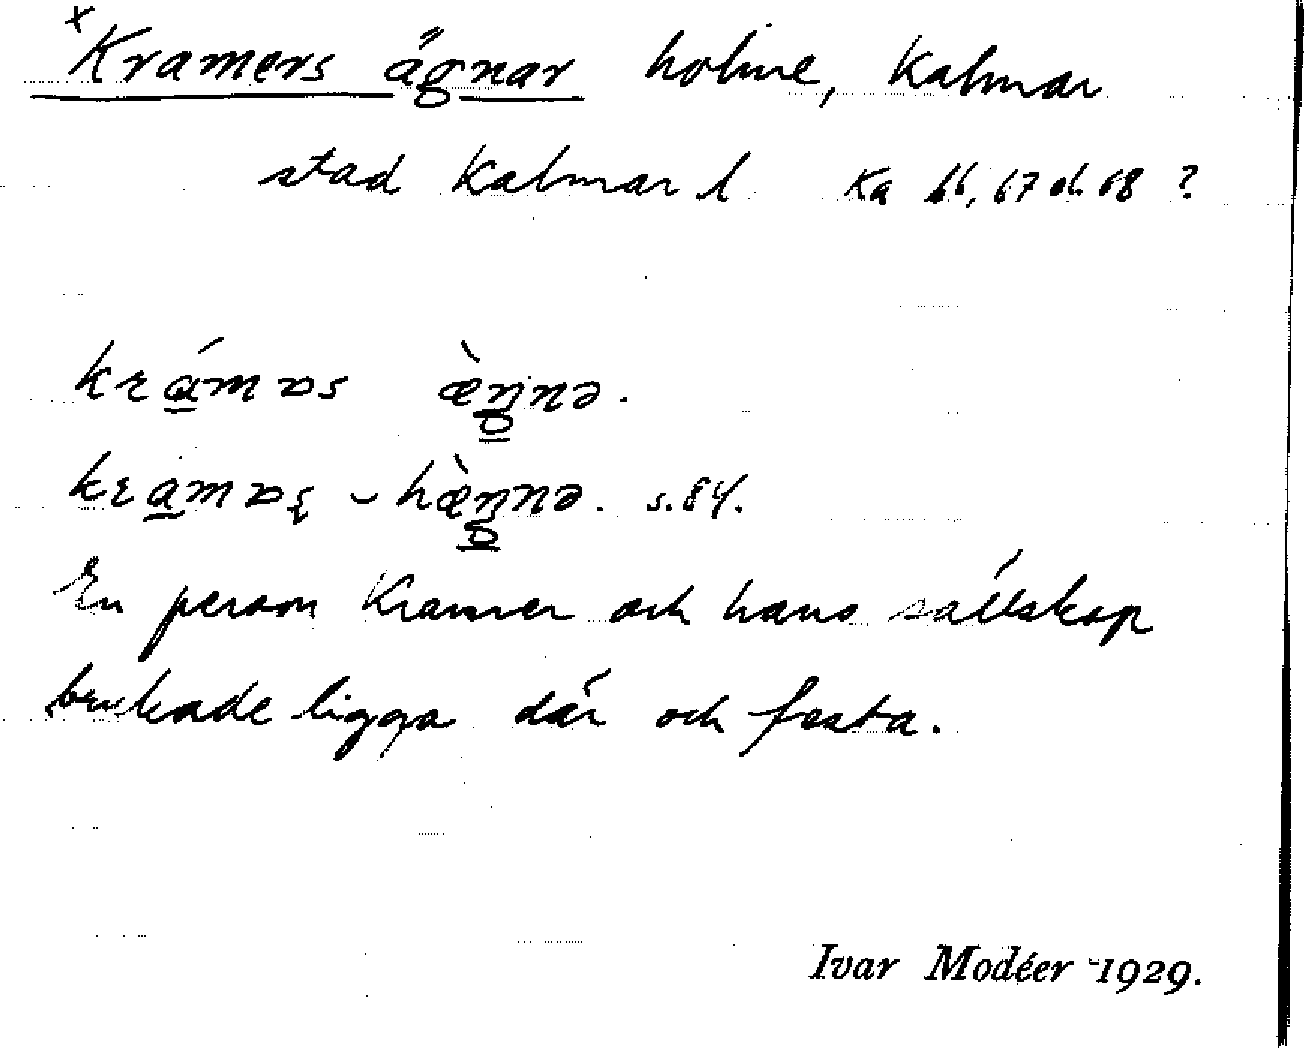 x Kramers ägnar holme, Kalmar
stad Kalmar l Ka 66, 67 ok 68 ?
krámɒs æ̀ŋnə.
kramɒs ‿hæ̀ŋnə. s.84.
En person Kramer och hans sällskap
brukade ligga där och festa.
Ivar Modéer 1929.